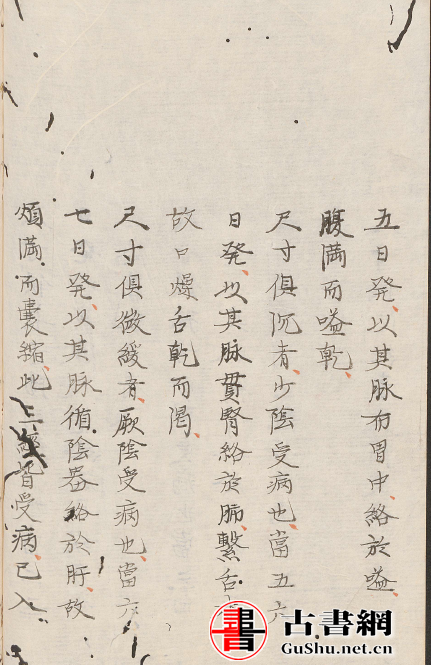 五日発、以其脉布胃中、絡於嗌、
腹満而嗌乾、
尺寸俱沉者、少陰受病也、當五六
日発、以其脉貫腎絡於肺、繫舌
故口燥舌乾而渇、
尺寸俱微緩者、厥陰受病也、當六
七日発、以其脉循陰器絡於肝、故
煩満而囊縮、此三經皆受病、已入
書 古書網
GuShu.net.cn